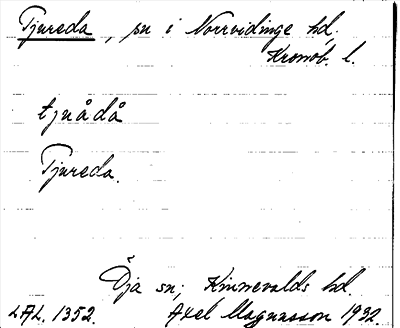 Tjureda, sn i Norrvidinge hd,
Kronob. l.
tjuådå
Tjureda.
Öja sn; Kinnevalds hd.
LAL. 1352. Axel Magnusson 1932.